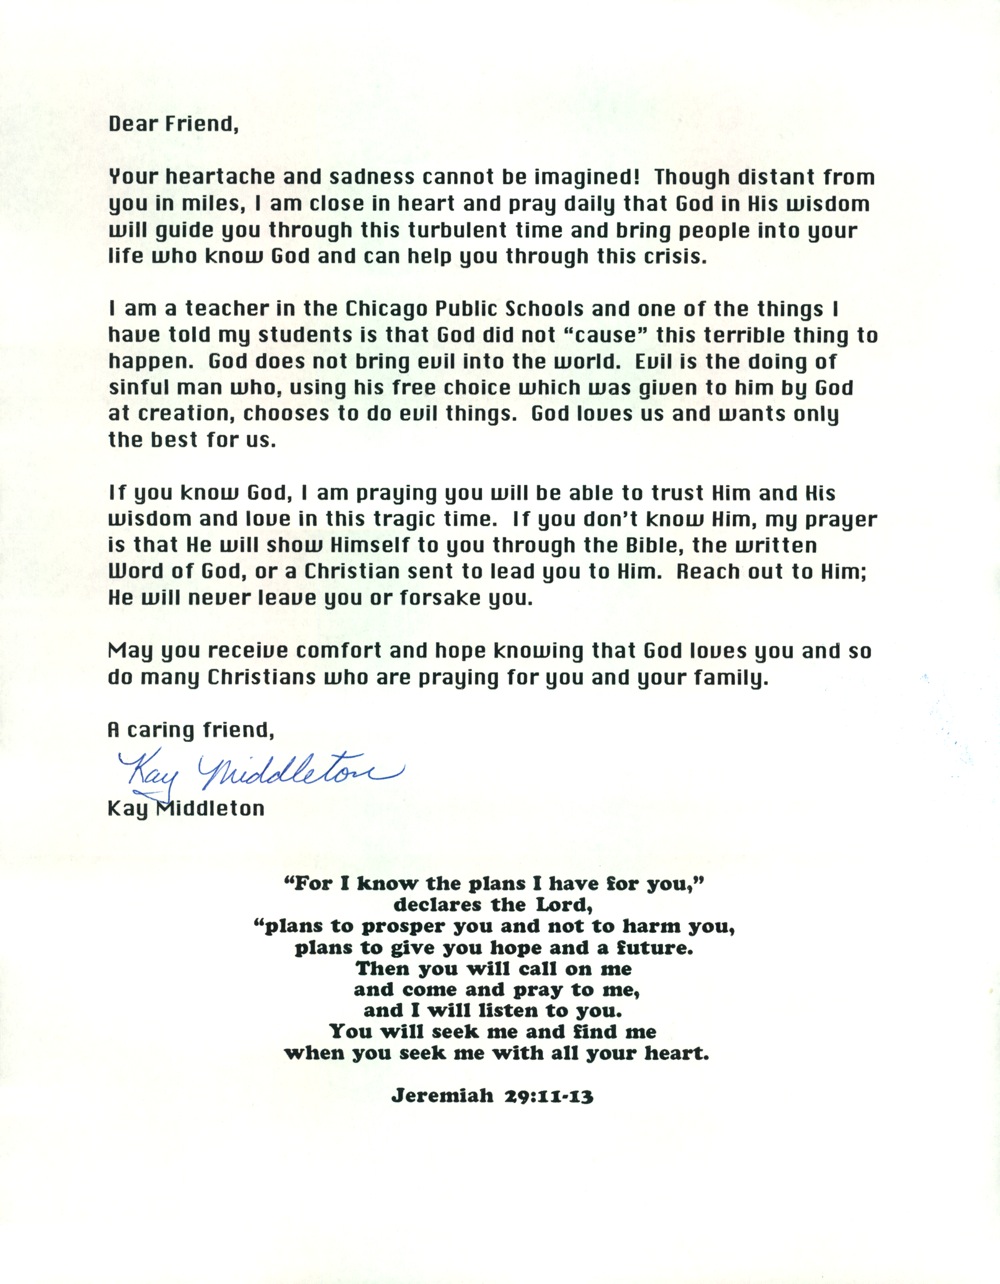 Dear Friend,
Your heartache and sadness cannot be imagined! Though distant from
you in miles, I am close in heart and pray daily that God in His wisdom
will guide you through this turbulent time and bring people into your
life who know God and can help you through this crisis.
I am a teacher in the Chicago Public Schools and one of the things I
have told my students is that God did not “cause” this terrible thing to
happen. God does not bring evil into the world. Evil is the doing of
sinful man who, using his free choice which was given to him by God
at creation, chooses to do evil things. God loves us and wants only
the best for us.
If you know God, I am praying you will be able to trust Him and His
wisdom and love in this tragic time. If you don’t know Him, my prayer
is that He will show Himself to you through the Bible, the written
Word of God, or a Christian sent to lead you to Him. Reach out to Him;
He will never leave you or forsake you.
May you receive comfort and hope knowing that God loves you and so
do many Christians who are praying for you and your family.
A caring friend,
Kay Middleton
Kay Middleton
“For I know the plans I have for you,”
declares the Lord,
“plans to prosper you and not to harm you,
plans to give you hope and a future.
Then you will call on me
and come and pray to me,
and I will listen to you.
You will seek me and find me
when you seek me with all your heart.
Jeremiah 29:11-13